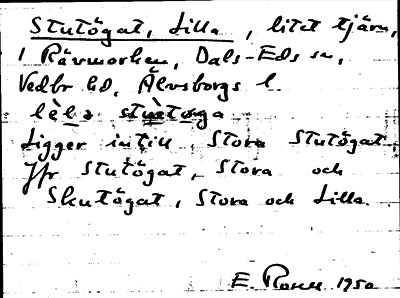 Stutögat, Lilla, litet tjärn,
i Rävmarken, Dals-Eds sn,
Vedbo hd, Älvsborgs l.
lèla stuètoga
Ligger intill Stora Stutögat.
Jfr Stutögat, Stora och
Skutögat, Stora och Lilla.
E. 1950